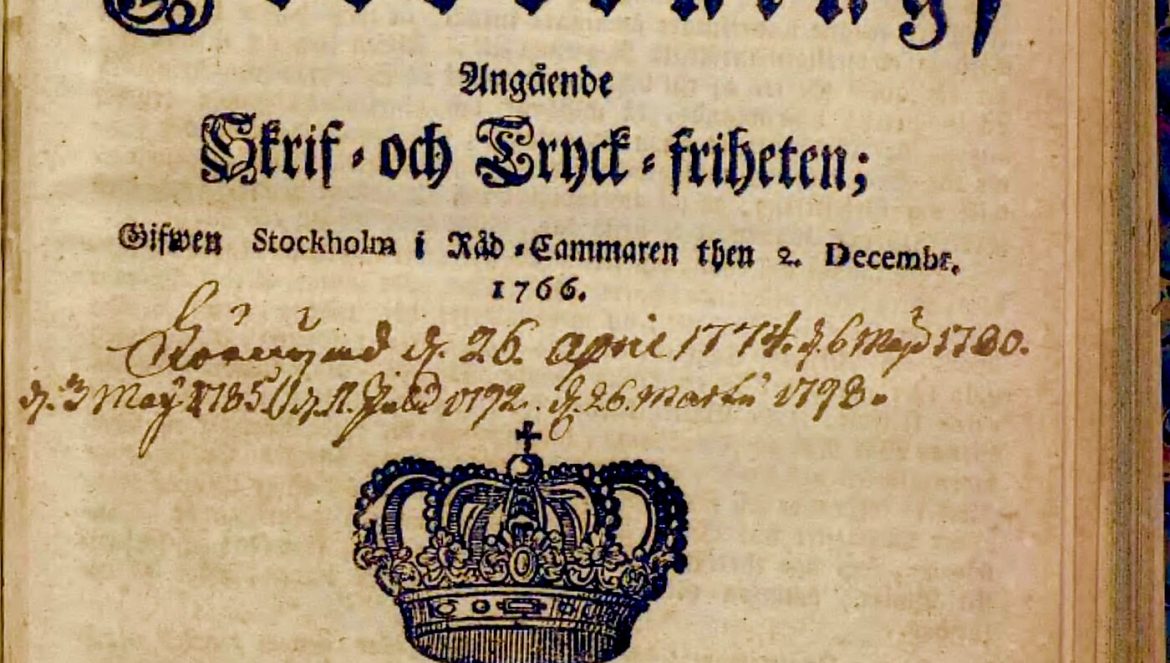 Angående
Skrif- och Tryck-friheten;
Gifwen Stockholm i Råd-Cammaren then 2. Decembr.
1766.
d. 26. april 1774. d. 6 May 1780.
d. 3 May 1785 d. 11. 1792. d. 26. Martii 1798.